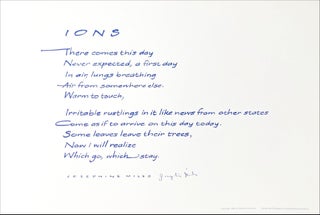 IONS
There comes this day
Never expected, a first day
In air, lungs breathing
Air from somewhere else.
Warm to touch,
Irritable rustlings in it like news from other states
Come as if to arrive on this day today.
Some leaves leave their trees,
Now I will realize
Which go, which stay.
JOSEPHINE MILES